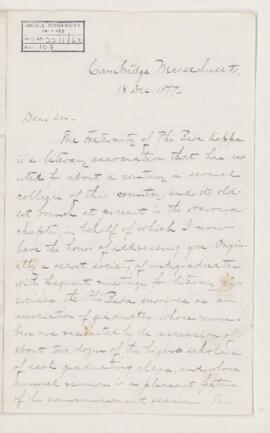 Cambridge, Massachusetts,
18 Dec. 1877.
Dear Sir-
The Fraternity of Phi Beta Kappa
is a literary association that has ex-
isted for about a century in several
colleges of this country, and its old-
est branch at present is the Harvard
chapter, in behalf of which I now
have the honor of addressing you. Origin-
ally a secret society of undergraduates
with frequent meetings for literary exer-
cises, the Phi Beta survives as an
association of graduates, whose num-
bers are recruited by the accession of
about two dozen of the highest scholars
of each graduating class, and whose
annual reunion is a pleasant feature
of the commencement season. The